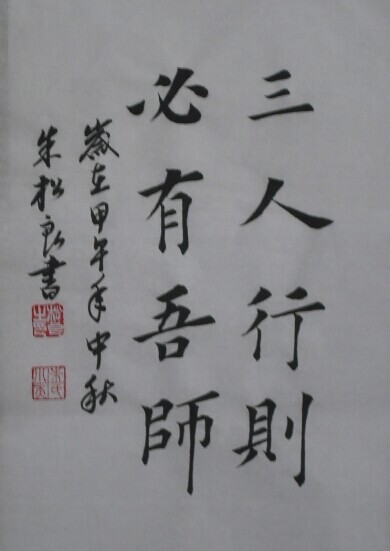 三人行則
必有吾師
歲在甲午年中秋
朱松良書